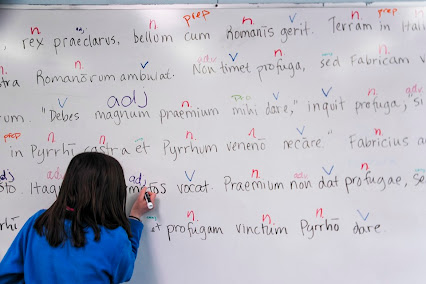 n. n. prep n. v n. prep n.
rex praeclarus, bellum cum Romanīs gerit. Terram in
n. n. v adv v n. n.
Romanōrum ambulat. Non timet profuga, sed Fabricam
v adj n. pro v v n. adv
"Debes magnum praemium mihi dare," inquit profuga, "si
prep n. n. n. n. v n.
in Pyrrhī castra et Pyrrhum venēno necāre." Fabricius
adv n. adj n. v n. adv v n.
vocat. Praemium non dat profugae,
n. n. n. v
et profugam vinctum Pyrrhō dare.